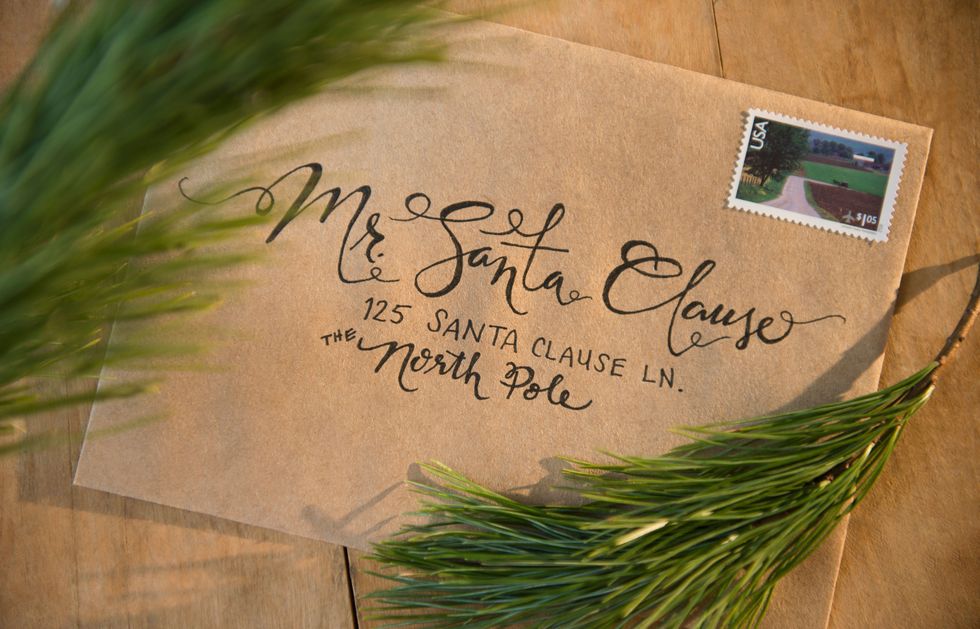 USA
$1.05
Mr. Santa Clause
125 SANTA CLAUSE LN.
THE North Pole